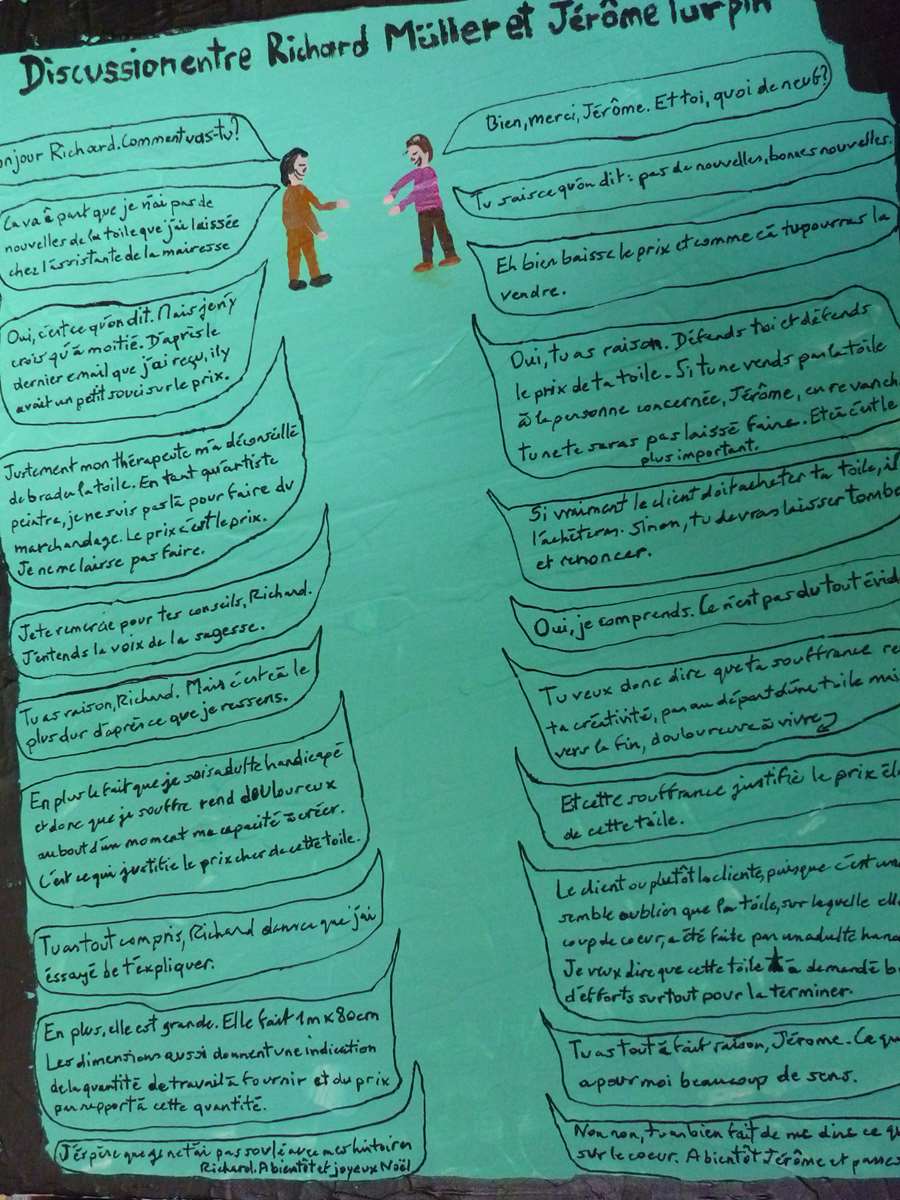 Discussion entre Richard Müller et Jérôme Turpin
onjour Richard. Comment vas-tu?
Bien, merci, Jérôme. Et toi, quoi de neuf?
Ca va à part que je n'ai pas de
nouvelles de la toile que j'ai laissée
chez l'assistante de la mairesse
Tu sais ce qu'on dit: pas de nouvelles, bonnes nouvelles.
Oui, c'est ce qu'on dit. Mais je n'y
crois qu'à moitié. D'après le
dernier email que j'ai reçu, il y
avait un petit souci sur le prix.
Eh bien baisse le prix et comme cà tu pourras la
vendre.
Justement mon thérapeute m'a déconseillé
de brader la toile. En tant qu'artiste
peintre, je ne suis pas là pour faire du
marchandage. Le prix c'est le prix.
Je ne me laisse pas faire.
Oui, tu as raison. Défends toi et défends
le prix de ta toile. Si tu ne vends pas la toile
à la personne concernée, Jérôme, en revanch
tu ne te seras pas laissé faire. Et cà c'est le
plus important.
Je te remercie pour tes conseils, Richard.
J'entends la voix de la sagesse.
Si vraiment le client doit acheter ta toile, il
l'achètera. Sinon, tu devras laisser tombe
et renoncer.
Tu as raison, Richard. Mais c'est cà le
plus dur d'après ce que je ressens.
Oui, je comprends. Ce n'est pas du tout évid
En plus le fait que je sois adulte handicapé
et donc que je souffre rend douloureux
au bout d'un moment ma capacité à créer.
C'est ce qui justifie le prix cher de cette toile.
Tu veux donc dire que ta souffrance re
ta créativité, pas au départ d'une toile mai
vers la fin, douloureuse à vivre?
Tu as tout compris, Richard dans ce que j'ai
éssayé de t'expliquer.
Et cette souffrance justifie le prix éle
de cette toile.
En plus, elle est grande. Elle fait 1m x 80cm
Les dimensions aussi donnent une indication
de la quantité de travail à fournir et du prix
par rapport à cette quantité.
Le client ou plutôt la cliente, puisque c'est une
semble oublier que la toile, sur laquelle elle
coup de coeur, a été faite par un adulte hand
Je veux dire que cette toile a demandé b
d'efforts surtout pour la terminer.
Tu as tout à fait raison, Jérome. Ce qu
a pour moi beaucoup de sens.
J'éspère que je ne t'ai pas soulé avec mes histoires
Richard. A bientôt et joyeux Noël
Non non, tu as bien fait de me dire ce qu
sur le coeur. A bientôt Jérôme et passes